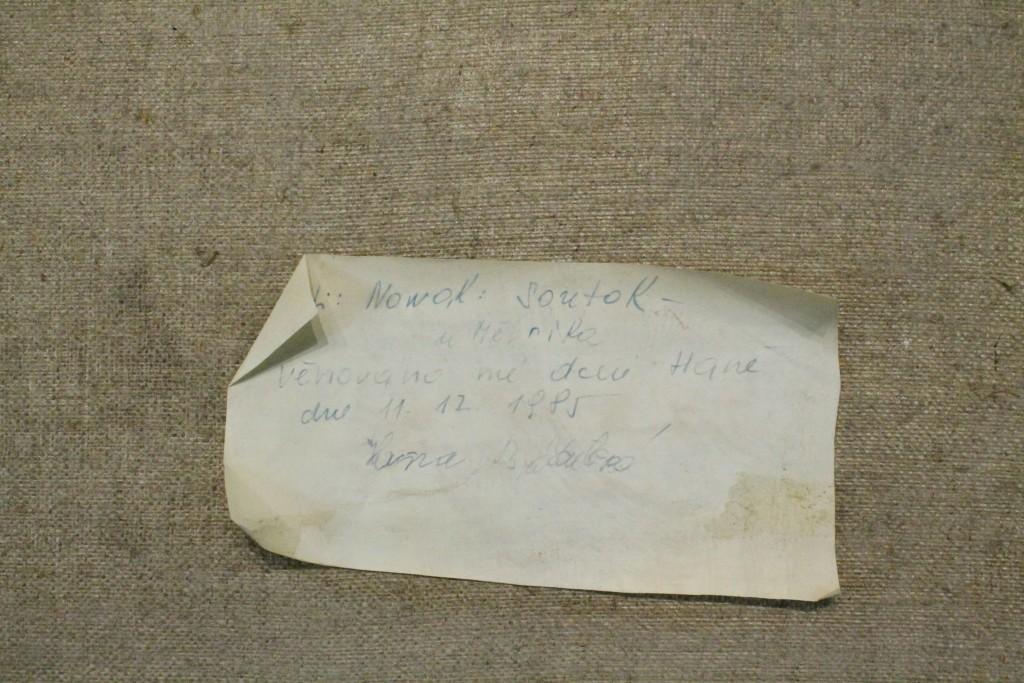 Nowak: Soutok -
u Mělníka
Věnováno mé dceři Haně
dne 11. 12. 1985
Hana